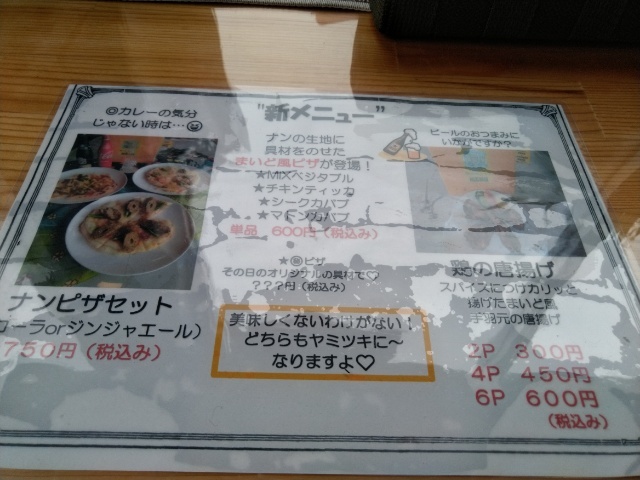 "新メニュー"
◎カレーの気分
じゃない時は…
ナンの生地に
具材をのせた
まいど風ピザが登場！
★MIXベジタブル
★チキンティッカ
★シークカバブ
★マトンカバブ
単品 600円（税込み）
★㊙ピザ
その日のオリジナルの具材で♡
？？？円（税込み）
ナンピザセット
（コーラorジンジャエール）
750円（税込み）
美味しくないわけがない！
どちらもヤミツキに～
なりますよ♡
ビールのおつまみに
いかがですか？
鶏の唐揚げ
スパイスにつけカリッと
揚げたまいど風
手羽元の唐揚げ
2P 300円
4P 450円
6P 600円
（税込み）